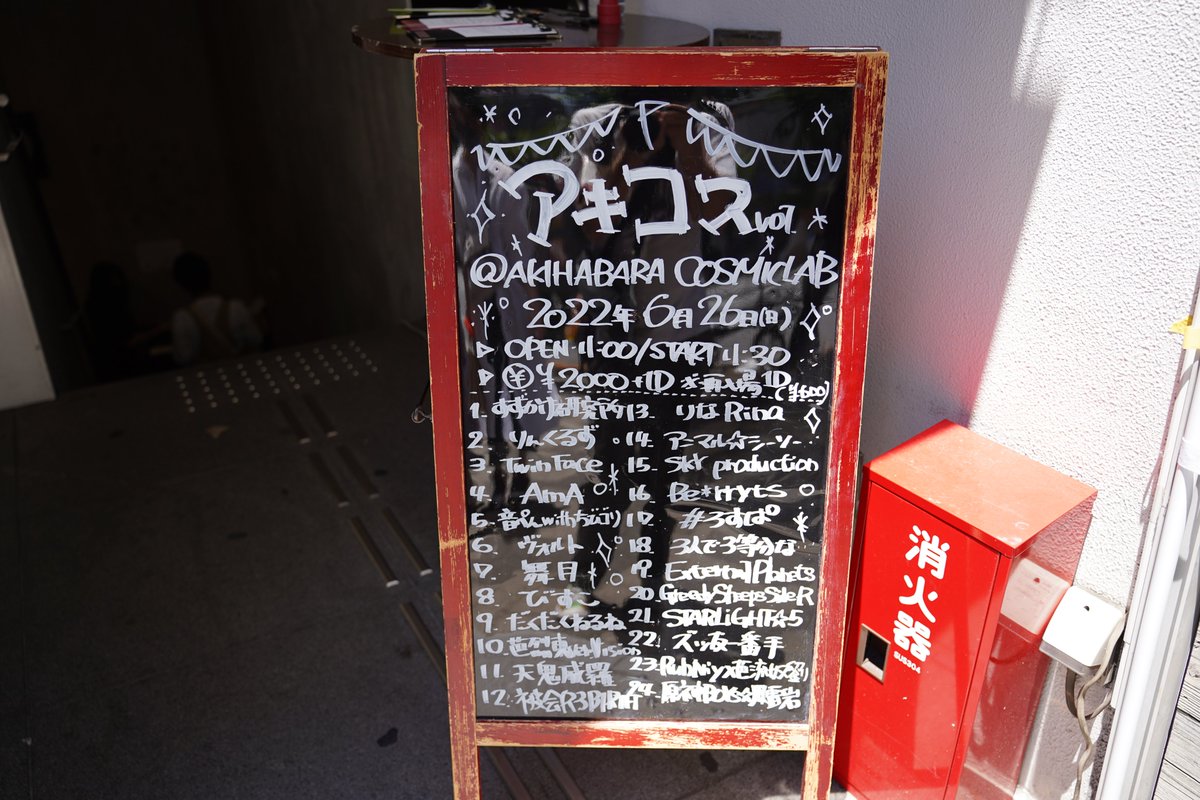 アキコス vol.
@AKIHABARA COSMICLAB
2022年6月26日(日)
▷ OPEN 11:00/START 11:30
▷ ¥ ¥2000+1D ※再入場1D
(¥600)
1. すずかけ研究所
2. りんくるず
3. Twin Face
4. AmA
5. 音 with
6. ヴォルト
7. 舞月
8. でびすこ
9. だくだくねるね
10.
11. 天鬼威羅
12.
13. りなRina
14. アニマル☆シーソー
15. SkY production
16. Be*Hyts
17. #3すぱ
18. 3人で3等分な
19. External Planets
20. Greedy Sheeps SideR
21. STARLiGHT☆5
22. ズッ友一番手
23.
24.
消火器
SUS304